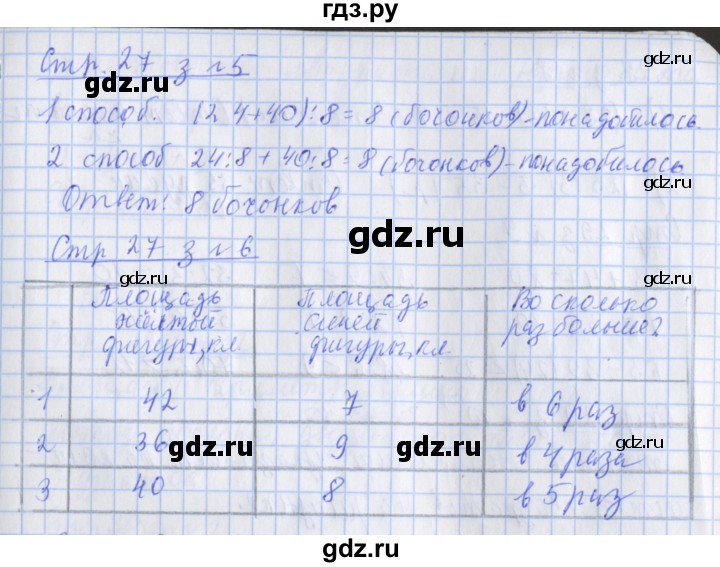 гдз.ру
Стр. 27 з №5
gdz.ru
gdz.ru
1 способ. (24+40):8= 8 (бочонков)-понадобилось.
gdz.ru
gdz.ru
2 способ 24:8+40:8=8(бочонков)-понадобилось
Ответ: 8 бочонков
gdz.ru
Стр 27 з №6
gdz.ru
gdz.ru
Площадь жёлтой фигуры, кл. Площадь синей фигуры, кл. Во сколько раз больше?
1 42 7 в 6 раз
2 36 9 в 4 раза
gdz.ru
gdz.ru
gdz.ru
3 40 8 в 5 раз
gdz.ru